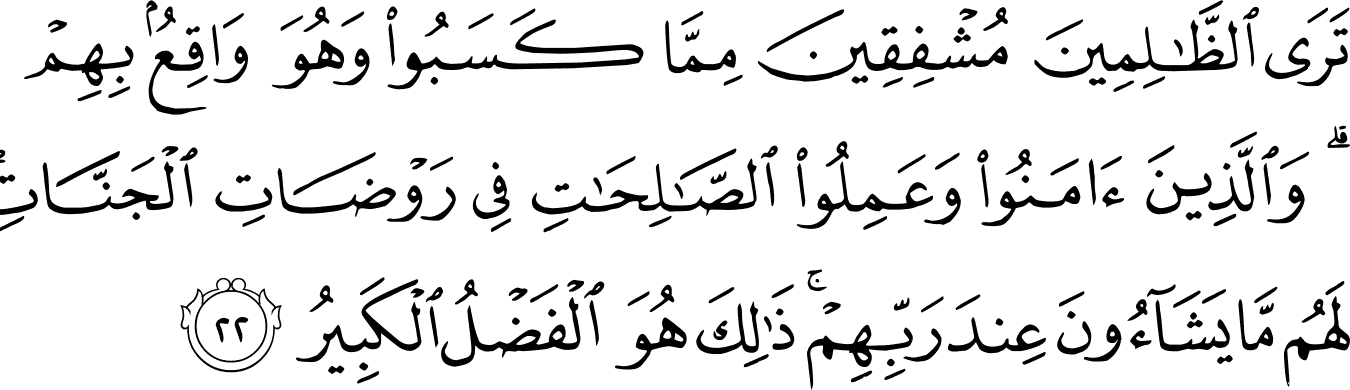 تَرَى ٱلظَّـٰلِمِينَ مُشْفِقِينَ مِمَّا كَسَبُوا۟ وَهُوَ وَاقِعٌۢ بِهِمْ
ۗ وَٱلَّذِينَ ءَامَنُوا۟ وَعَمِلُوا۟ ٱلصَّـٰلِحَـٰتِ فِى رَوْضَاتِ ٱلْجَنَّاتِ ۖ
لَهُم مَّا يَشَآءُونَ عِندَ رَبِّهِمْ ۚ ذَٰلِكَ هُوَ ٱلْفَضْلُ ٱلْكَبِيرُ ٢٢